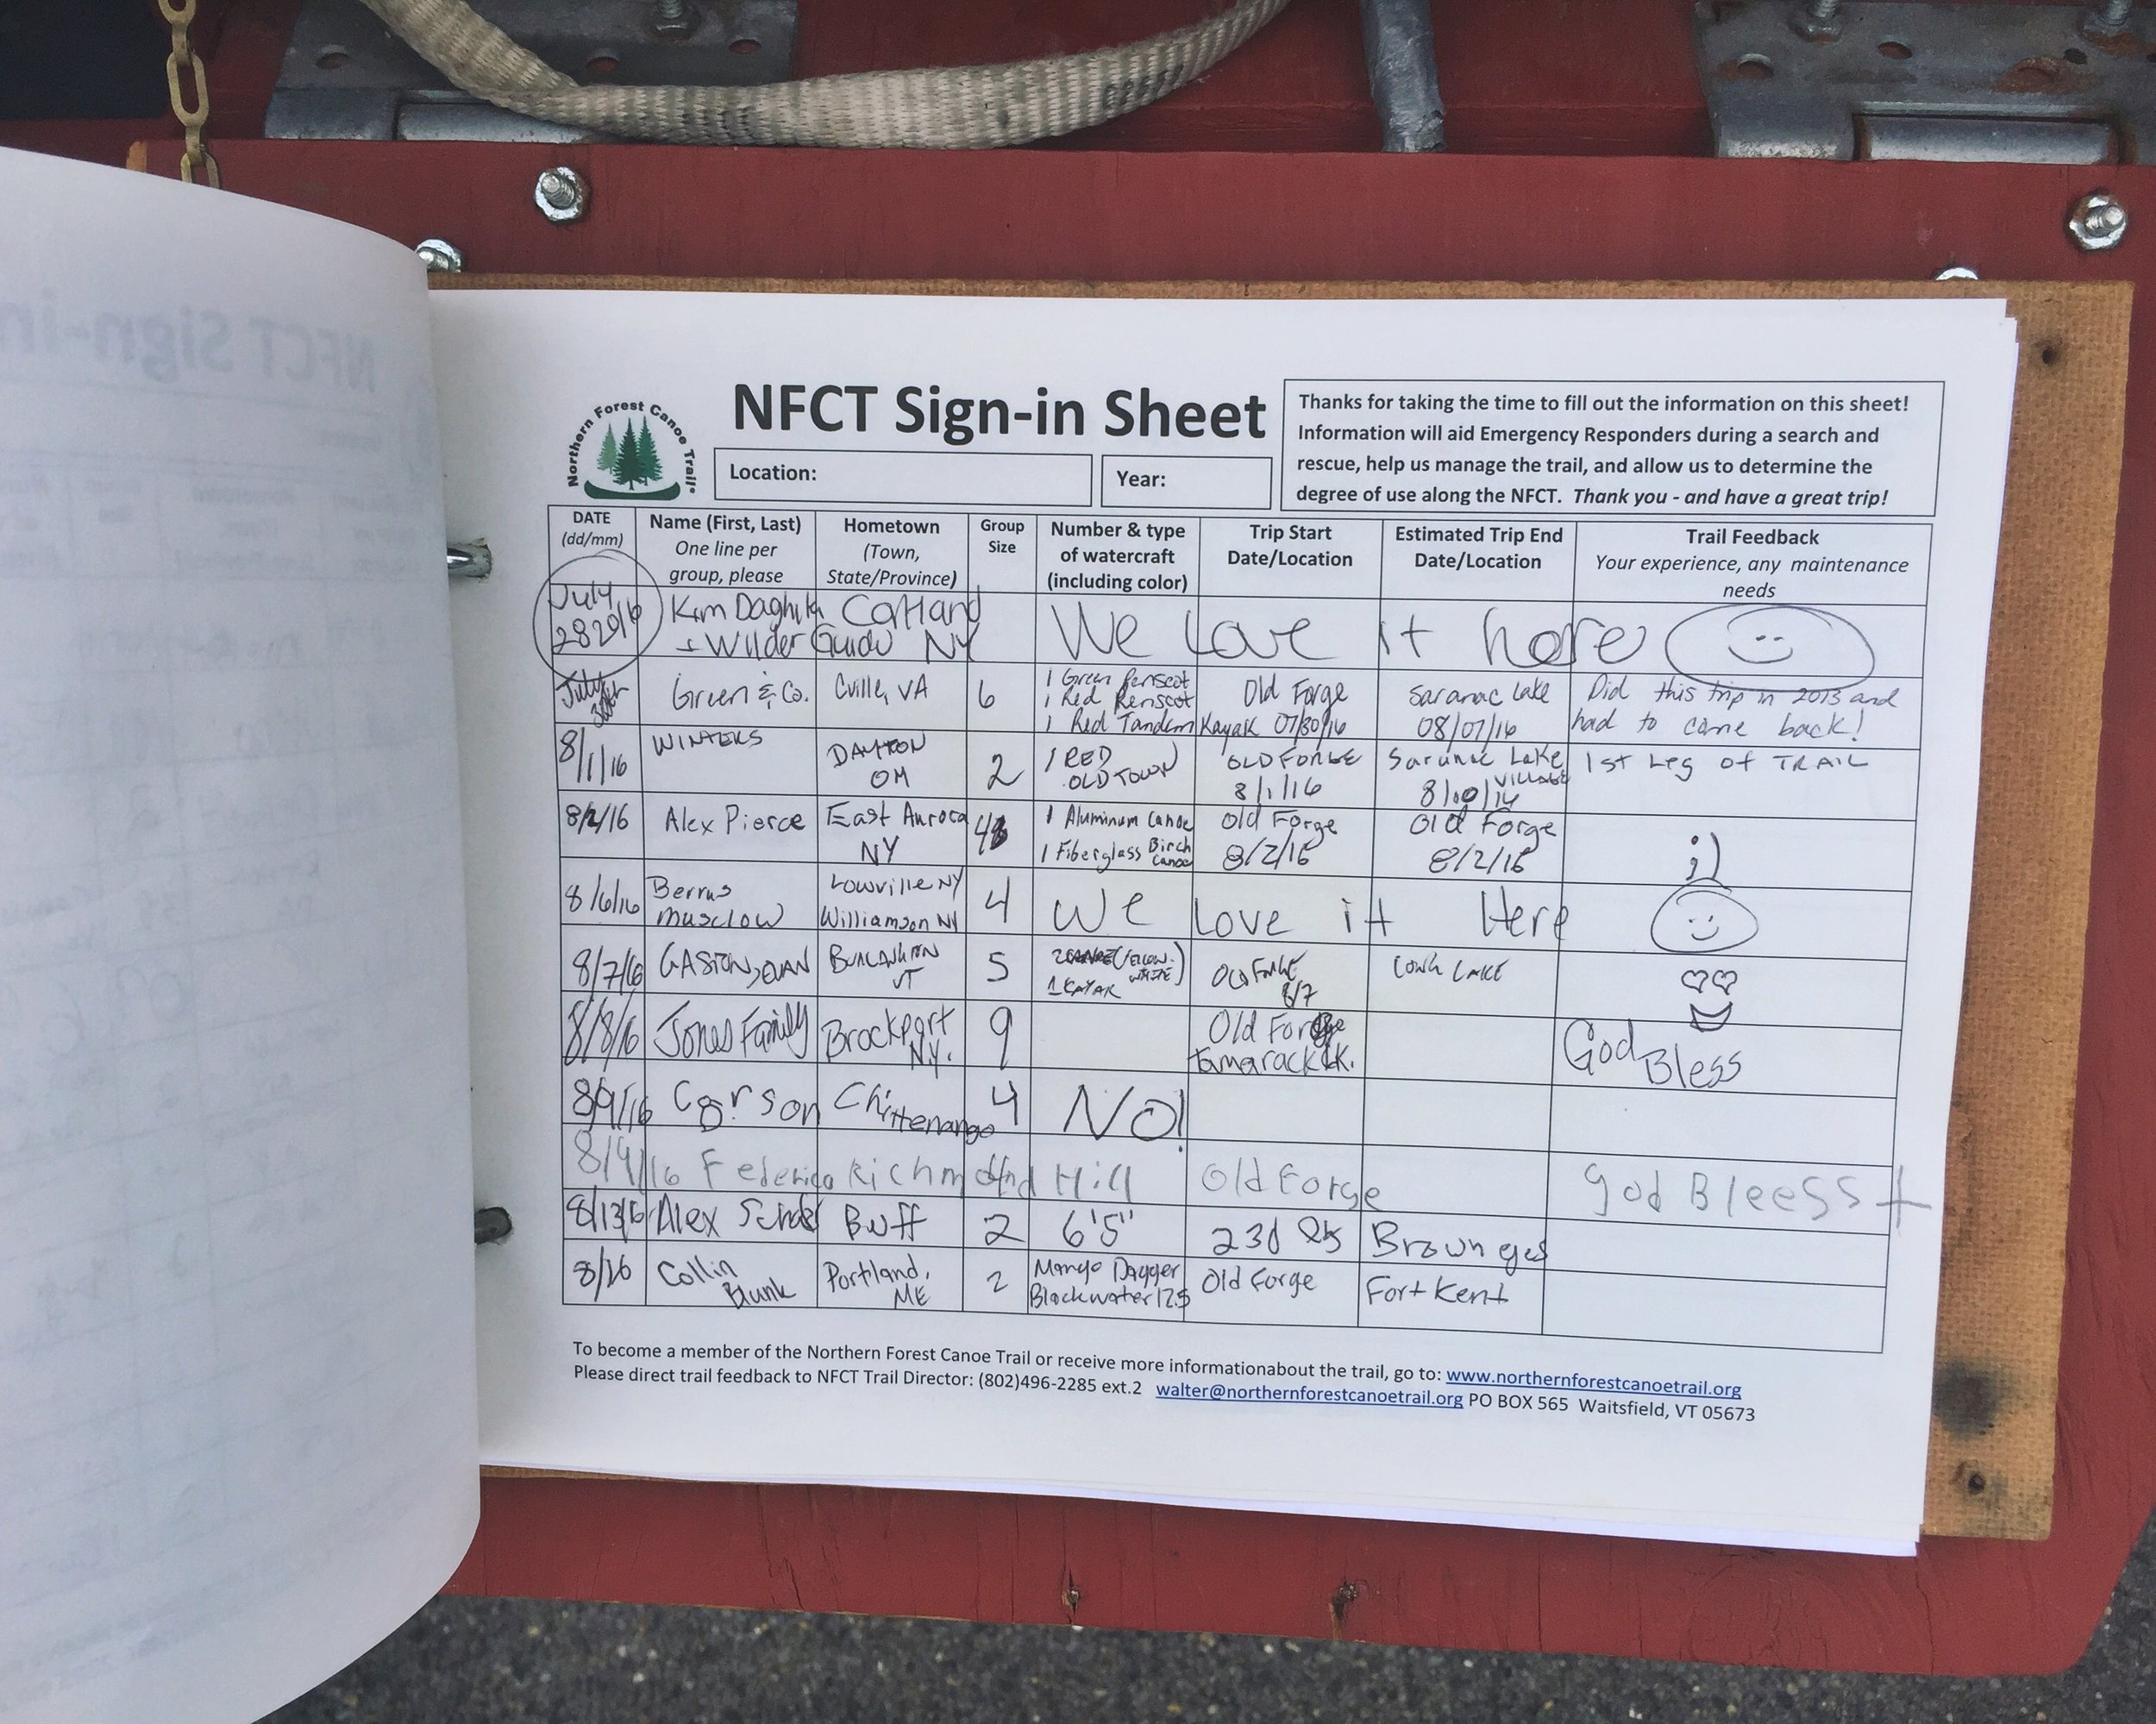 NFCT Sign-in
Northern Forest Canoe Trail
NFCT Sign-in Sheet
Location:
Year:
Thanks for taking the time to fill out the information on this sheet!
Information will aid Emergency Responders during a search and
rescue, help us manage the trail, and allow us to determine the
degree of use along the NFCT. Thank you - and have a great trip!
DATE
(dd/mm)
Name (First, Last)
One line per
group, please
Hometown
(Town,
State/Province)
Group
Size
Number & type
of watercraft
(including color)
Trip Start
Date/Location
Estimated Trip End
Date/Location
Trail Feedback
Your experience, any maintenance
needs
July
28 2016
Kim
+ Wilder Guido
NY
We Love it here
July
30th
Green & Co.
Cville, VA
6
1 Green Penscot
1 Red Penscot
1 Red Tandem Kayak
Old Forge
07/30/16
Saranac Lake
08/07/16
Did this trip in 2013 and
had to come back!
8/1/16
WINTERS
DAYTON
OH
2
1 RED
OLD TOWN
OLD FORGE
8/1/16
Saranac Lake
VILLAGE
8/10/16
1st Leg of TRAIL
8/2/16
Alex Pierce
East Aurora
NY
4
1 Aluminum Canoe
1 Fiberglass Birch
Canoe
Old Forge
8/2/16
Old Forge
8/2/16
;)
8/6/16
Berrus
Musclow
Lowville NY
Williamson NY
4
We Love it Here
8/7/16
GASTON, EVAN
VT
5
(YELLOW-
WHITE)
1 KAYAK
OLD FORGE
8/7
LAKE
8/8/16
Jones Family
Brockport
N.Y.
9
Old Forge
Tamarack Lk.
God
Bless
8/9/16
Carson
Chittenango
4
NO!
8/9/16
Federico
Richmond Hill
Old Forge
God Bleess +
8/13/16
Alex
Buff
2
6'5"
230 lbs
Brown eyes
8/20
Collin
Blunk
Portland,
ME
2
Mango Dagger
Blackwater 12.5
Old Forge
Fort Kent
To become a member of the Northern Forest Canoe Trail or receive more informationabout the trail, go to: www.northernforestcanoetrail.org
Please direct trail feedback to NFCT Trail Director: (802)496-2285 ext.2 walter@northernforestcanoetrail.org PO BOX 565 Waitsfield, VT 05673